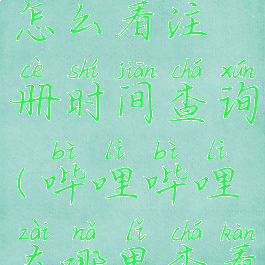 怎么看注
cè shí jiān chá xún
册时间查询
bì lì bì lì
(哔哩哔哩
zài nǎ lǐ chá kàn
在哪里查看